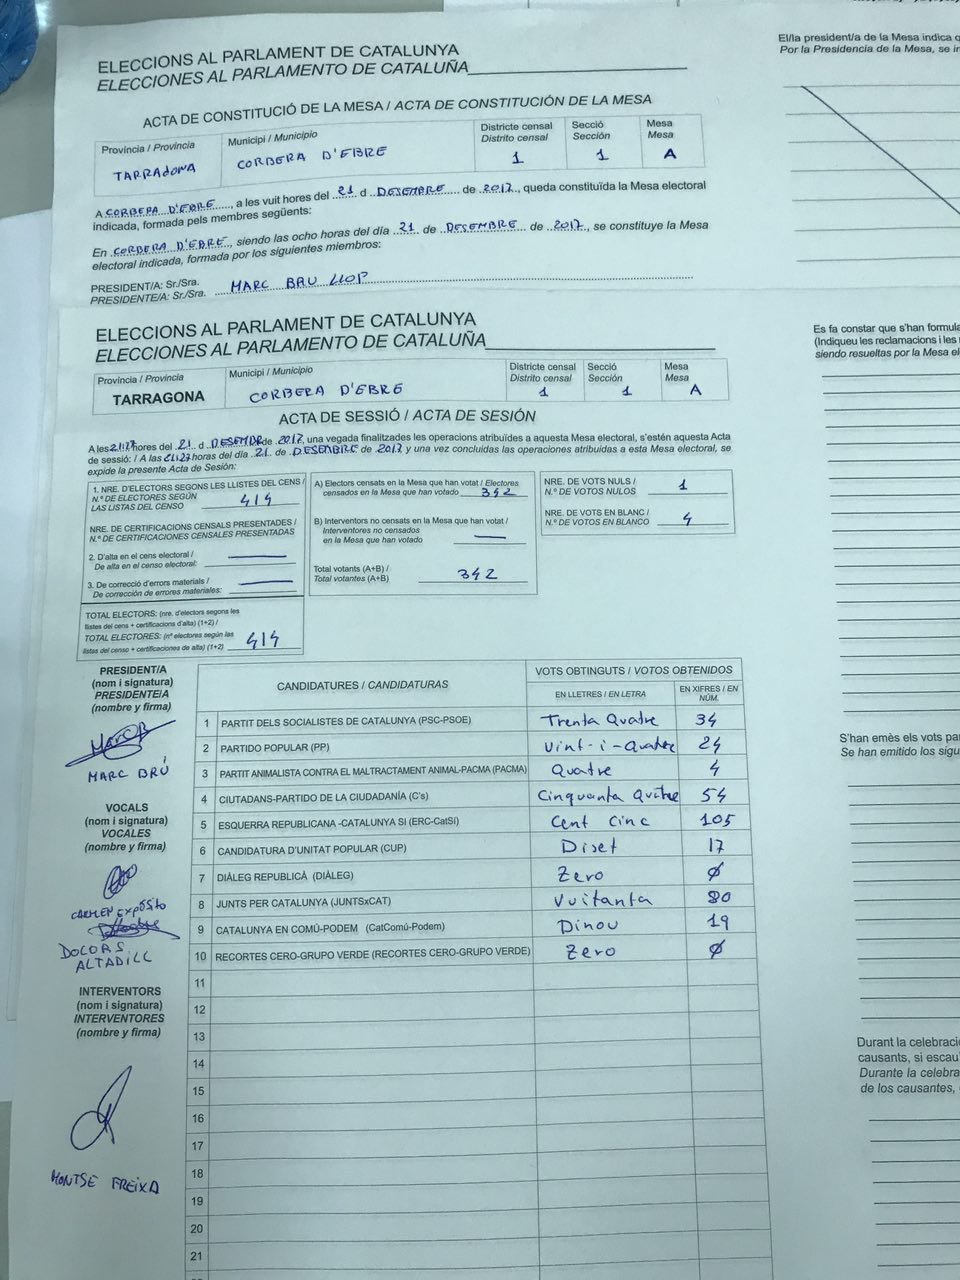 El/la president/a de la Mesa indica q
Por la Presidencia de la Mesa, se in
ELECCIONS AL PARLAMENT DE CATALUNYA
ELECCIONES AL PARLAMENTO DE CATALUÑA
ACTA DE CONSTITUCIÓ DE LA MESA / ACTA DE CONSTITUCIÓN DE LA MESA
Província / Provincia
Municipi / Municipio
Districte censal
Distrito censal
Secció
Sección
Mesa
Mesa
TARRAGONA
CORBERA D'EBRE
1
1
A
A CORBERA D'EBRE, a les vuit hores del 21 d DESEMBRE de 2017, queda constituïda la Mesa electoral
indicada, formada pels membres següents:
En CORBERA D'EBRE, siendo las ocho horas del día 21 de DESEMBRE de 2017, se constituye la Mesa
electoral indicada, formada por los siguientes miembros:
PRESIDENT/A: Sr./Sra.
PRESIDENTE/A: Sr./Sra.
MARC BRU LLOP
ELECCIONS AL PARLAMENT DE CATALUNYA
ELECCIONES AL PARLAMENTO DE CATALUÑA
Es fa constar que s'han formula
(Indiqueu les reclamacions i les
siendo resueltas por la Mesa el
Província / Provincia
Municipi / Municipio
Districte censal
Distrito censal
Secció
Sección
Mesa
Mesa
TARRAGONA
CORBERA D'EBRE
1
1
A
ACTA DE SESSIÓ / ACTA DE SESIÓN
A les 21:27 hores del 21 d DESEMBR de 2017, una vegada finalitzades les operacions atribuïdes a aquesta Mesa electoral, s'estén aquesta Acta
de sessió: / A las 21:27 horas del día 21 de DESEMBRE de 2017 y una vez concluidas las operaciones atribuidas a esta Mesa electoral, se
expide la presente Acta de Sesión:
1. NRE. D'ELECTORS SEGONS LES LLISTES DEL CENS /
N.º DE ELECTORES SEGÚN
LAS LISTAS DEL CENSO
414
NRE. DE CERTIFICACIONS CENSALS PRESENTADES /
N.º DE CERTIFICACIONES CENSALES PRESENTADAS
2. D'alta en el cens electoral /
De alta en el censo electoral:
3. De correcció d'errors materials /
De corrección de errores materiales:
TOTAL ELECTORS: (nre. d'electors segons les
llistes del cens + certificacions d'alta) (1+2) /
TOTAL ELECTORES: (nº electores según las
listas del censo + certificaciones de alta) (1+2)
414
A) Electors censats en la Mesa que han votat / Electores
censados en la Mesa que han votado
342
B) Interventors no censats en la Mesa que han votat /
Interventores no censados
en la Mesa que han votado
Total votants (A+B) /
Total votantes (A+B)
342
NRE. DE VOTS NULS /
N.º DE VOTOS NULOS
1
NRE. DE VOTS EN BLANC /
N.º DE VOTOS EN BLANCO
4
PRESIDENT/A
(nom i signatura)
PRESIDENTE/A
(nombre y firma)
MARC BRÚ
VOCALS
(nom i signatura)
VOCALES
(nombre y firma)
CARMEN EXPÓSITO
DOLORS
ALTADILL
INTERVENTORS
(nom i signatura)
INTERVENTORES
(nombre y firma)
MONTSE FREIXA
CANDIDATURES / CANDIDATURAS
VOTS OBTINGUTS / VOTOS OBTENIDOS
EN LLETRES / EN LETRA
EN XIFRES / EN
NÚM.
1 PARTIT DELS SOCIALISTES DE CATALUNYA (PSC-PSOE) Trenta Quatre 34
2 PARTIDO POPULAR (PP) Vint-i-Quatre 24
3 PARTIT ANIMALISTA CONTRA EL MALTRACTAMENT ANIMAL-PACMA (PACMA) Quatre 4
4 CIUTADANS-PARTIDO DE LA CIUDADANÍA (C's) Cinquanta Quatre 54
5 ESQUERRA REPUBLICANA -CATALUNYA SI (ERC-CatSí) Cent Cinc 105
6 CANDIDATURA D'UNITAT POPULAR (CUP) Diset 17
7 DIÀLEG REPUBLICÀ (DIÀLEG) Zero 0
8 JUNTS PER CATALUNYA (JUNTSxCAT) Vuitanta 80
9 CATALUNYA EN COMÚ-PODEM (CatComú-Podem) Dinou 19
10 RECORTES CERO-GRUPO VERDE (RECORTES CERO-GRUPO VERDE) Zero 0
11
12
13
14
15
16
17
18
19
20
21
S'han emès els vots pa
Se han emitido los sigu
Durant la celebració
causants, si escau
Durante la celebra
de los causantes,